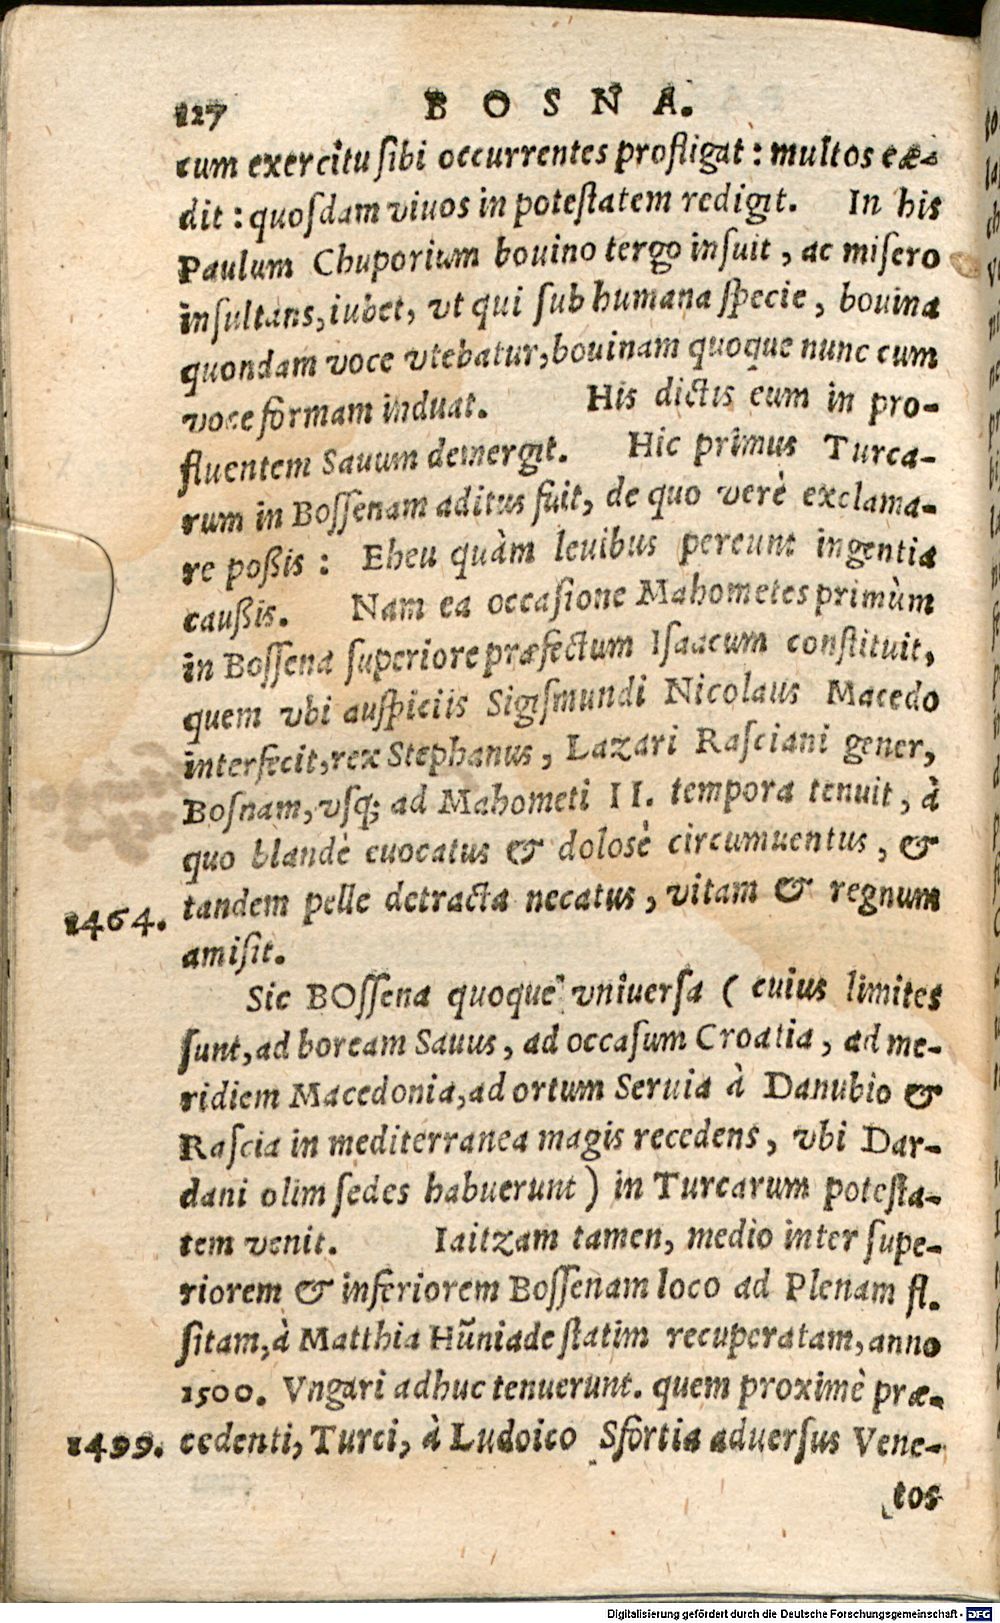 127 BOSNA.
cum exercitu ſibi occurrentes profligat : multos cæ-
dit : quoſdam viuos in poteſtatem redigit. In his
Paulum Chuporium bouino tergo inſuit , ac miſero
inſultans, iubet, vt qui ſub humana ſpecie , bouina
quondam voce vtebatur, bouinam quoque nunc cum
voce formam induat. His dictis eum in pro-
fluentem Sauum demergit. Hic primus Turca-
rum in Boſſenam aditus fuit, de quo verè exclama-
re poßis : Eheu quàm leuibus pereunt ingentia
caußis. Nam ea occaſione Mahometes primùm
in Boſſena ſuperiore præfectum Iſaacum conſtituit,
quem vbi auſpiciis Sigiſmundi Nicolaus Macedo
interfecit, rex Stephanus , Lazari Raſciani gener,
Boſnam, vſq; ad Mahometi II. tempora tenuit , à
quo blandè euocatus & dolosè circumuentus , &
1464. tandem pelle detracta necatus , vitam & regnum
amiſit.
Sic BOſſena quoque vniuerſa ( cuius limites
ſunt, ad boream Sauus , ad occaſum Croatia , ad me-
ridiem Macedonia, ad ortum Seruia à Danubio &
Raſcia in mediterranea magis recedens , vbi Dar-
dani olim ſedes habuerunt ) in Turcarum poteſta-
tem venit. Iaitzam tamen, medio inter ſupe-
riorem & inferiorem Boſſenam loco ad Plenam fl.
ſitam, à Matthia Hũniade ſtatim recuperatam, anno
1500. Vngari adhuc tenuerunt. quem proximè præ-
1499. cedenti, Turci, à Ludoico Sfortia aduerſus Vene-
tos
Digitalisierung gefördert durch die Deutsche Forschungsgemeinschaft - DFG